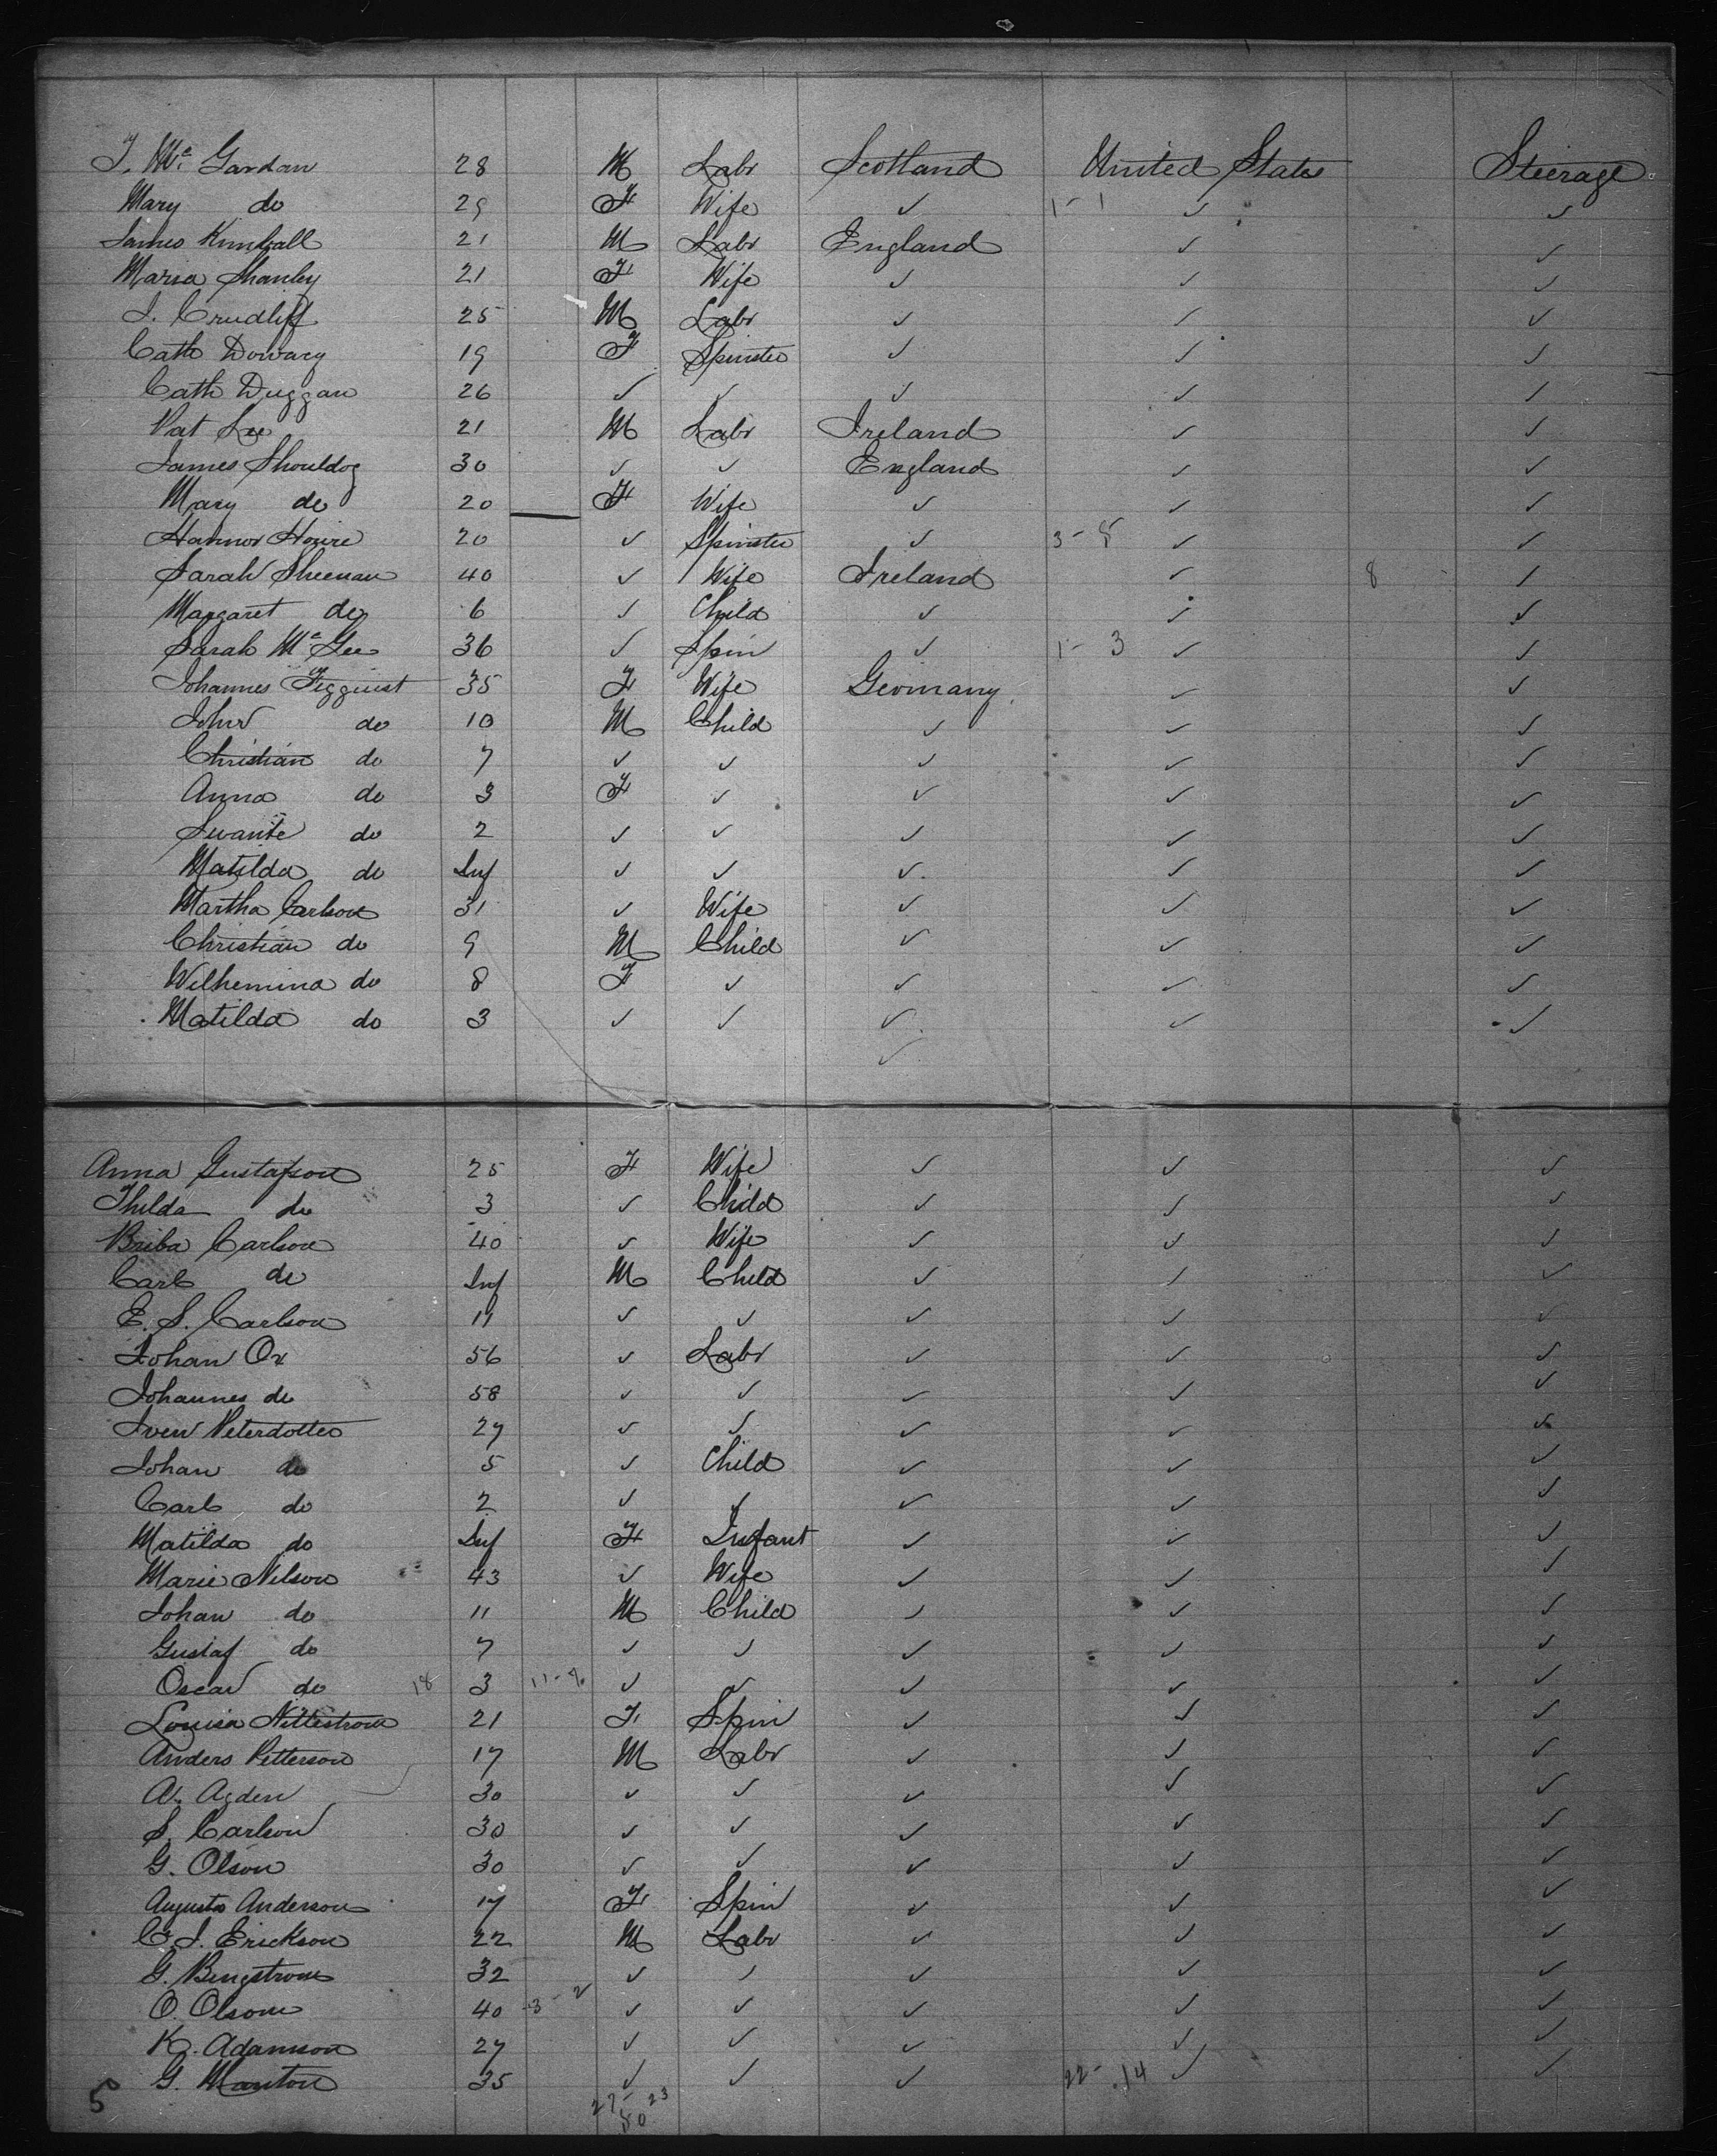 T. Mc Gardan 28 M Labr Scotland United States Steerage
Mary do 29 F Wife ✓ 1-1 ✓ ✓
James Kimball 21 M Labr England ✓ ✓
Maria Shanley 21 F Wife ✓ ✓ ✓
J. Crudliff 25 M Labr ✓ ✓ ✓
Cath Dowary 19 F Spinster ✓ ✓ ✓
Cath Duggan 26 ✓ ✓ ✓ ✓ ✓
Pat Lee 21 M Labr Ireland ✓ ✓
James Shouldog 30 ✓ ✓ England ✓ ✓
Mary do 20 F Wife ✓ ✓ ✓
Hannor 20 ✓ Spinster ✓ 3-5 ✓ ✓
Sarah Sheenan 40 ✓ Wife Ireland ✓ 8 ✓
Margaret do 6 ✓ Child ✓ ✓ ✓
Sarah Mc Gee 36 ✓ Spin ✓ 1-3 ✓ ✓
Johannes Figguist 35 F Wife Germany ✓ ✓
John do 10 M Child ✓ ✓ ✓
Christian do 7 ✓ ✓ ✓ ✓ ✓
Anna do 3 F ✓ ✓ ✓ ✓
Swante do 2 ✓ ✓ ✓ ✓ ✓
Matilda do Inf ✓ ✓ ✓ ✓ ✓
Martha Carlson 31 ✓ Wife ✓ ✓ ✓
Christian do 9 M Child ✓ ✓ ✓
Wilhemina do 8 F ✓ ✓ ✓ ✓
Matilda do 3 ✓ ✓ ✓ ✓ ✓
✓
Anna Gustafson 25 F Wife ✓ ✓ ✓
Thilda do 3 ✓ Child ✓ ✓ ✓
Briba Carlson 40 ✓ Wife ✓ ✓ ✓
Carl do Inf M Child ✓ ✓ ✓
E. S. Carlson 11 ✓ ✓ ✓ ✓ ✓
Johan Ox 56 ✓ Labr ✓ ✓ ✓
Johannes do 58 ✓ ✓ ✓ ✓ ✓
Sven Peterdotter 27 ✓ ✓ ✓ ✓ ✓
Johan do 5 ✓ Child ✓ ✓ ✓
Carl do 2 ✓ ✓ ✓ ✓ ✓
Matilda do Inf F Infant ✓ ✓ ✓
Marie Nilson 43 ✓ Wife ✓ ✓ ✓
Johan do 11 M Child ✓ ✓ ✓
Gustaf do 7 ✓ ✓ ✓ ✓ ✓
Oscar do 18 3 ✓ ✓ ✓ ✓ ✓
Louisa Nittestrom 21 F Spin ✓ ✓ ✓
Anders Petterson 17 M Labr ✓ ✓ ✓
A. Agden 30 ✓ ✓ ✓ ✓ ✓
S. Carlson 30 ✓ ✓ ✓ ✓ ✓
G. Olson 30 ✓ ✓ ✓ ✓ ✓
Augusta Anderson 17 F Spin ✓ ✓ ✓
C. J. Erickson 22 M Labr ✓ ✓ ✓
G. Bengstrom 32 ✓ ✓ ✓ ✓ ✓
O. Olsom 40 3-2 ✓ ✓ ✓ ✓ ✓
K. Adamson 27 ✓ ✓ ✓ ✓ ✓
G. Manton 35 ✓ ✓ ✓ 22-14 ✓ ✓
5 27-23
50